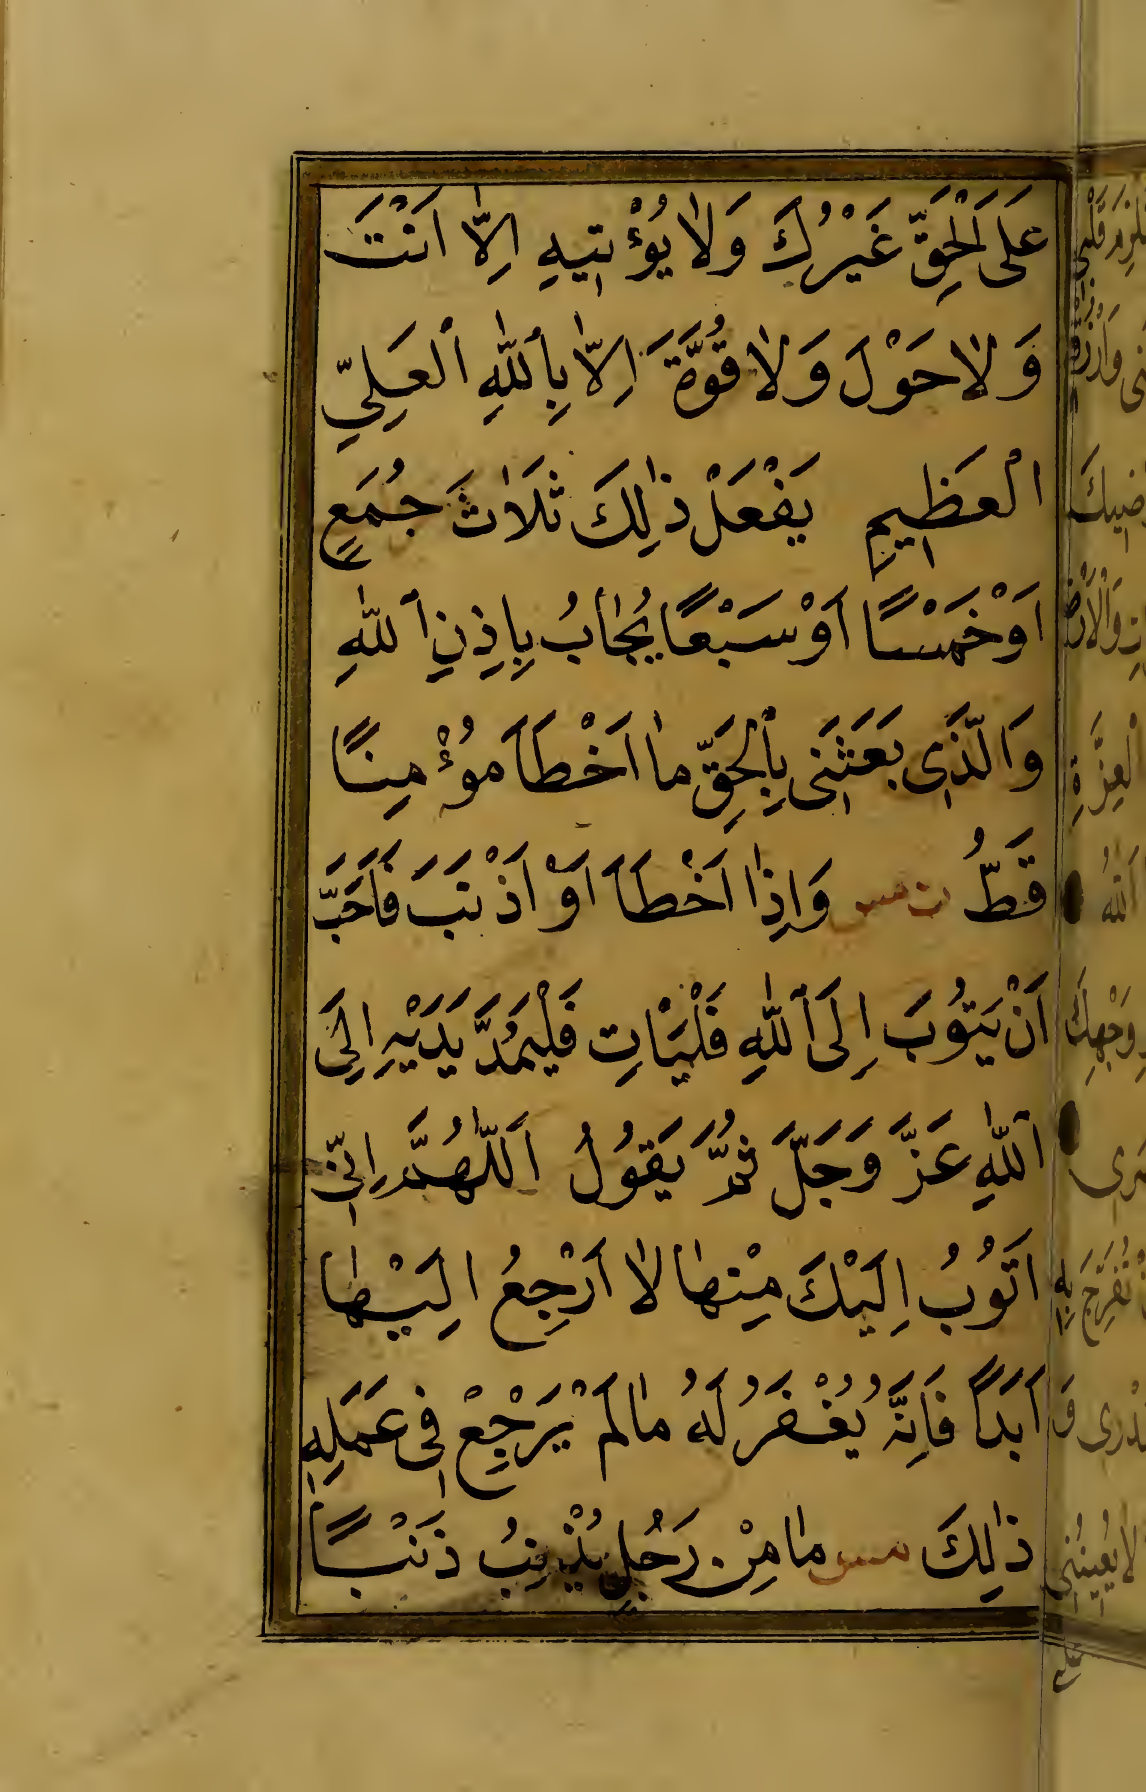 عَلَى الْحَقِّ غَيْرُكَ وَلَا يُؤْتِيهِ اِلَّا اَنْتَ
وَلَا حَوْلَ وَلَا قُوَّةَ اِلَّا بِٱللّٰهِ ٱلْعَلِيِّ
الْعَظِيمِ يَفْعَلْ ذٰلِكَ ثَلَاثَ جُمَعٍ
اَوْ خَمْسًا اَوْ سَبْعًا يُجَابُ بِاِذْنِ ٱللّٰهِ
وَالَّذَى بَعَثَنَى بِٱلْحَقِّ مَا اَخْطَا مُؤْمِنًا
قَطُّ ت مس وَاِذَا اَخْطَاَ اَوْ اَذْنَبَ فَاَحَبَّ
اَنْ يَتُوبَ اِلَى ٱللّٰهِ فَلْيَاْتِ فَلْيَمُدَّ يَدَيْهِ اِلَى
ٱللّٰهِ عَزَّ وَجَلَّ ثُمَّ يَقُولُ اَللّٰهُمَّ اِنِّى
اَتُوبُ اِلَيْكَ مِنْهَا لَا اَرْجِعُ اِلَيْهَا
اَبَدًا فَاِنَّهُ يُغْفَرُ لَهُ مَا لَمْ يَرْجِعْ فِى عَمَلِهِ
ذٰلِكَ مس مَا مِنْ رَجُلٍ يُذْنِبُ ذَنْبًا